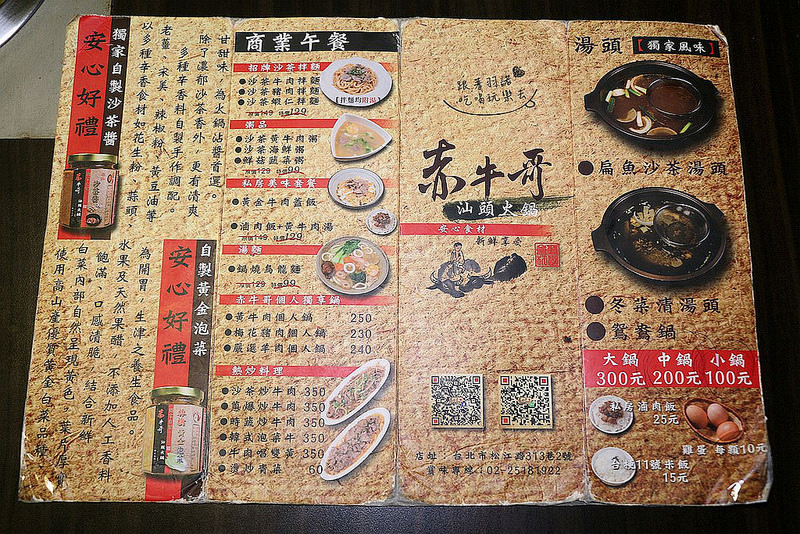 獨家自製沙茶醬
安心好禮
甘甜味，為火鍋沾醬首選。
除了濃郁沙茶香外，更有清爽
多種辛香料自製手作調配。
老薑、宋美、辣椒粉、黃豆油等
以多種辛香食材如花生粉、蒜頭、
自製黃金泡菜
安心好禮
為開胃、生津之養生食品。
水果及天然果醋，不添加人工香料，
飽滿，口感清脆，結合新鮮
白菜內部自然呈現黃色，葉片厚實
使用高山產優質黃金白菜品種，
商業午餐
招牌沙茶拌麵
●沙茶牛肉拌麵
●沙茶豬肉拌麵
●沙茶蝦仁拌麵
原價149 特價99
【拌麵均附湯】
粥品
●沙茶黃牛肉粥
●沙茶海鮮粥
●鮮菇蔬菜粥
原價129 特價99
私房美味套餐
●黃金牛肉蓋飯
●滷肉飯+黃牛肉湯
原價149 特價99
湯麵
●鍋燒烏龍麵
原價129 特價99
赤牛哥個人獨享鍋
●黃牛肉個人鍋 250
●梅花豬肉個人鍋 230
●嚴選羊肉個人鍋 240
熱炒料理
●沙茶炒牛肉 350
●蔥爆炒牛肉 350
●時蔬炒牛肉 350
●韓式泡菜牛 350
●牛肉嚐雙黃 350
●燙炒青菜 60
跟著羽諾
吃喝玩樂去
赤牛哥
汕頭火鍋
安心食材
新鮮享受
店址：台北市松江路313巷2號
賞味專線：02-25181922
湯頭【獨家風味】
●扁魚沙茶湯頭
●冬菜清湯頭
●鴛鴦鍋
大鍋 中鍋 小鍋
300元 200元 100元
私房滷肉飯
25元
雞蛋 每顆10元
台梗11號米飯
15元